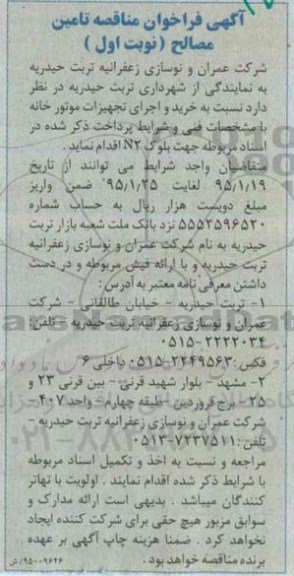 آگهی فراخوان مناقصه تامین
مصالح ( نوبت اول )
شرکت عمران و نوسازی زعفرانیه تربت حیدریه
به نمایندگی از شهرداری تربت حیدریه در نظر
دارد نسبت به خرید و اجرای تجهیزات موتور خانه
با مشخصات فنی و شرایط پرداخت ذکر شده در
اسناد مربوطه جهت بلوک N۲ اقدام نماید.
متقاضیان واجد شرایط می توانند از تاریخ
۹۵/۱/۱۹ لغایت ۹۵/۱/۲۵ ضمن واریز
مبلغ دویست هزار ریال به حساب شماره
۵۵۵۳۵۹۶۵۲۰ نزد بانک ملت شعبه بازار تربت
حیدریه به نام شرکت عمران و نوسازی زعفرانیه
تربت حیدریه و با ارائه فیش مربوطه و در دست
داشتن معرفی نامه معتبر به آدرس :
۱- تربت حیدریه - خیابان طالقانی - شرکت
عمران و نوسازی زعفرانیه تربت حیدریه - تلفن:
۰۵۱۵-۲۲۲۲۰۳۴
فکس: ۲۲۴۹۵۶۳-۰۵۱۵ داخلی ۶
۲- مشهد - بلوار شهید قرنی - بین قرنی ۲۳ و
۲۵- برج فروردین - طبقه چهارم - واحد ۴۰۷ -
شرکت عمران و نوسازی زعفرانیه تربت حیدریه -
تلفن: ۷۲۳۷۵۱۱-۰۵۱۳
مراجعه و نسبت به اخذ و تکمیل اسناد مربوطه
با شرایط ذکر شده اقدام نمایند . اولویت با تهاتر
کنندگان میباشد . بدیهی است ارائه مدارک و
سوابق مزبور هیچ حقی برای شرکت کننده ایجاد
نخواهد کرد . ضمنا هزینه چاپ آگهی بر عهده
برنده مناقصه خواهد بود.
۹۵۰۰۹۶۲۶/ش